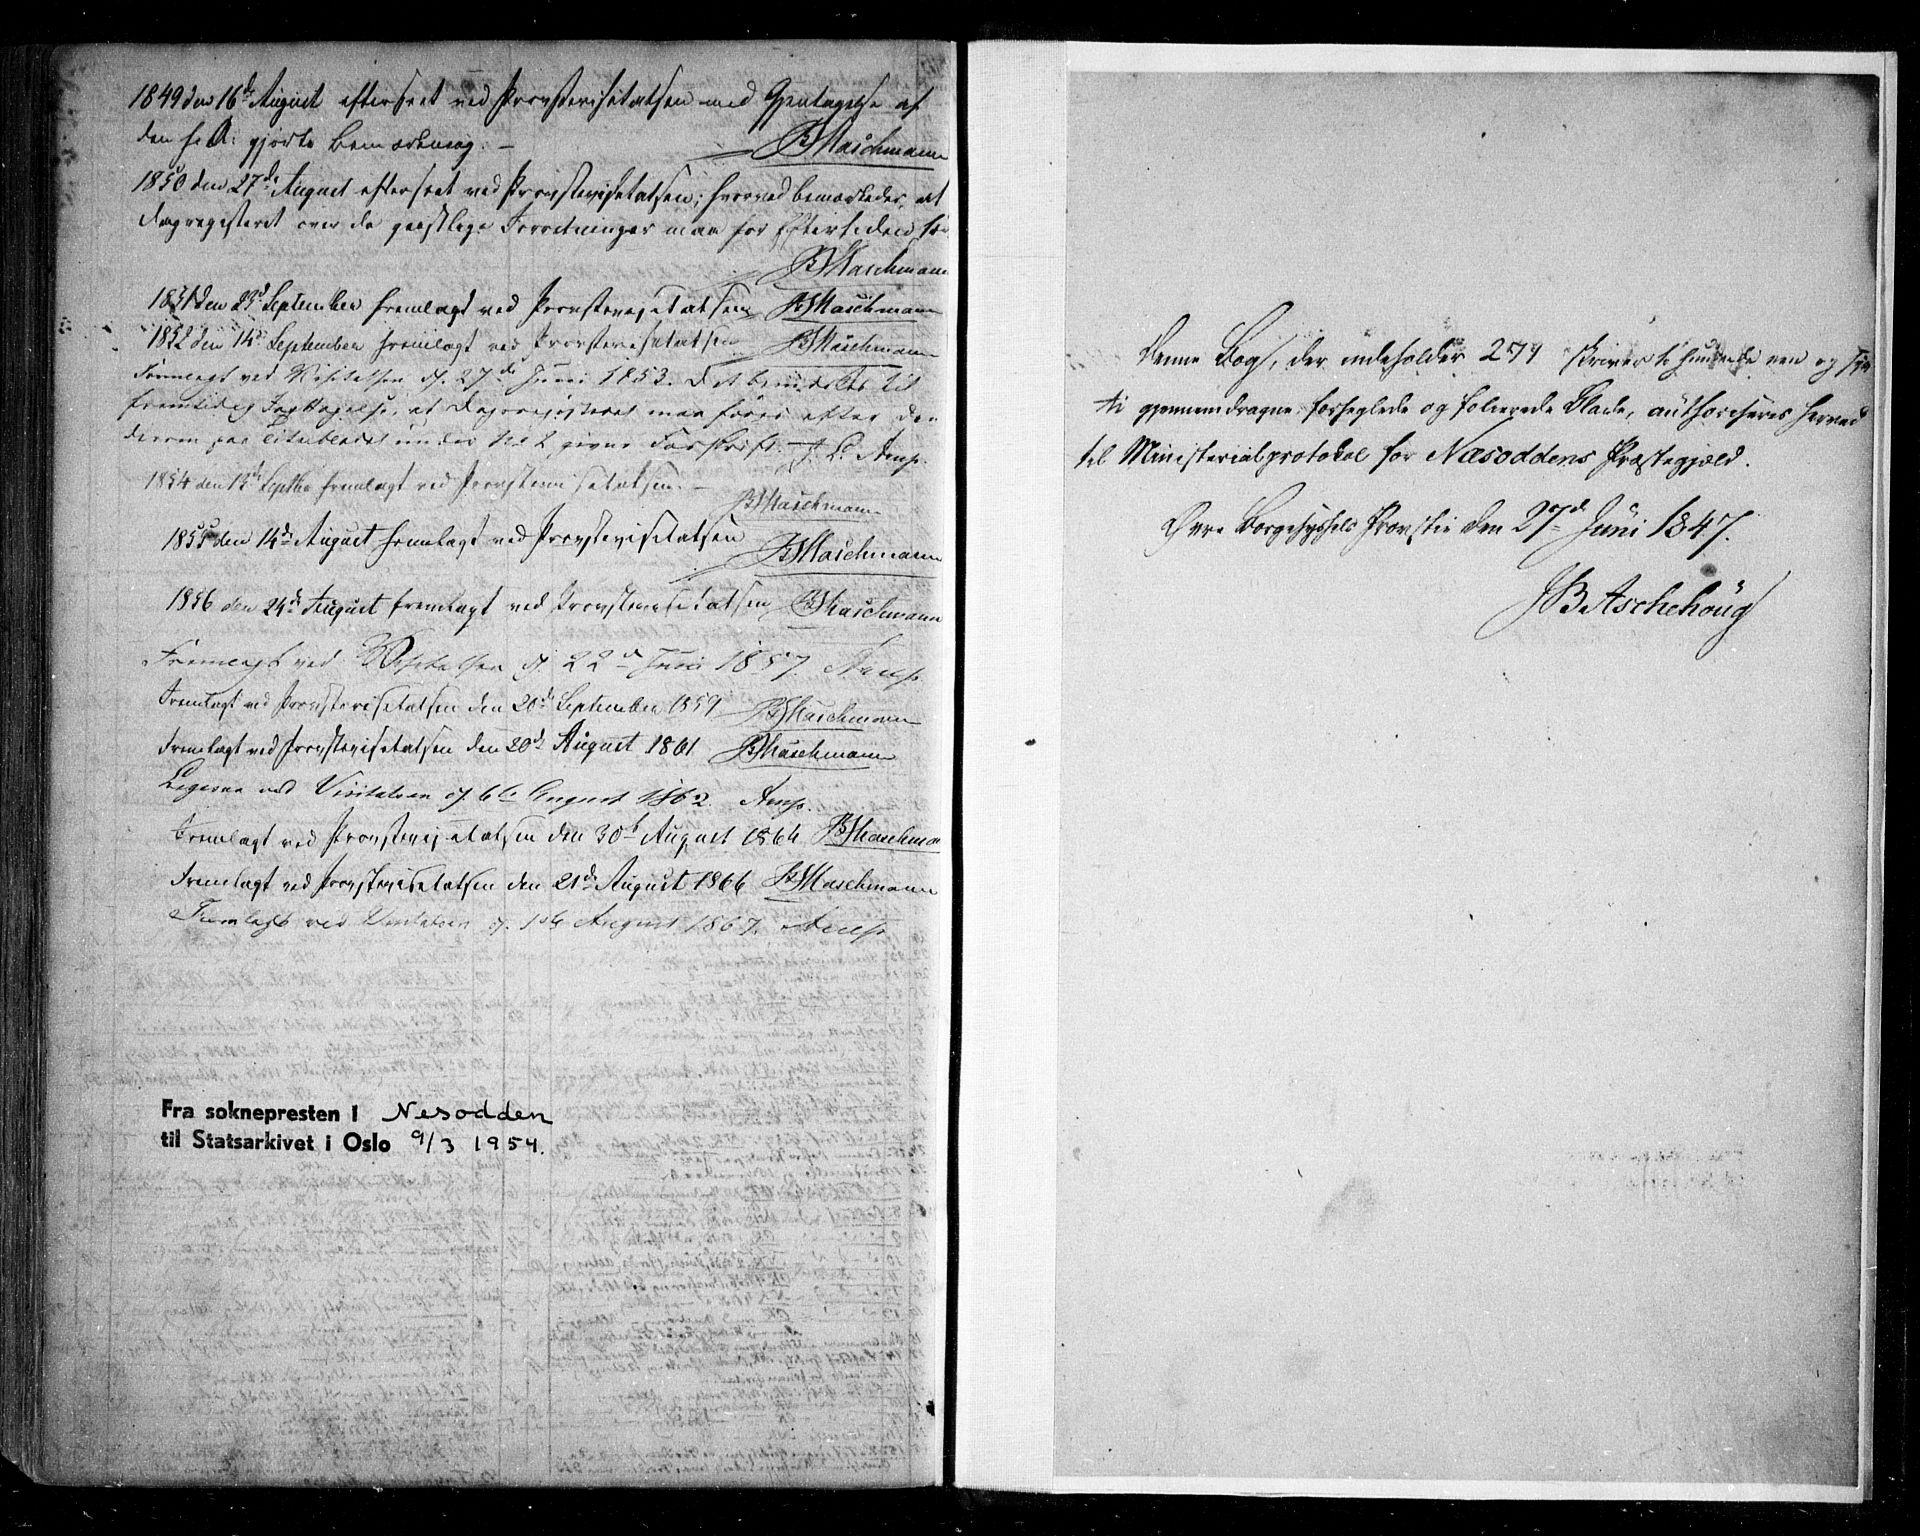 1849 den 16de August efterseet ved Provstevisitatsen med Gjentagelse af
den f. A. gjorte Bemærkning. –
BMaschmann
1850 den 27de August efterseet ved Provstevisitatsen; hvorved bemærkedes, at
Dagregisteret over de geistlige Forretninger maa for Eftertiden
BMaschmann
1851 den 23d September fremlagt ved Provstevisitatsen BMaschmann
1852 den 14de September fremlagt ved Provstevisitatsen BMaschmann
Fremlagt ved Visitatsen d. 27de Juni 1853. Det bemærkes til
fremtidig Iagttagelse, at Dagregisteret maa føres efter den
derom paa Titelbladet under No 2 givne Forskrift. – J. L. Arup.
1854 den 13de Septbr fremlagt ved Provstevisitatsen. –
BMaschmann
1855 den 14de August fremlagt ved Provstevisitatsen
BMaschmann
1856 den 24de August fremlagt ved Provstevisitatsen BMaschmann
Fremlagt ved Visitatsen d. 22de Juni 1857. Arup.
Fremlagt ved Provstevisitatsen den 20de September 1859 BMaschmann
Fremlagt ved Provstevisitatsen den 20de August 1861 BMaschmann
ved Visitatsen d. 6te August 1862. Arup.
Fremlagt ved Provstevisitatsen den 30te August 1864 BMaschman
Fremlagt ved Provstevisitatsen den 21de August 1866 BMaschmann
Fremlagt ved Visitatsen d. 1ste August 1867. Arup.
Fra soknepresten i Nesodden
til Statsarkivet i Oslo 9/3 1954.
Denne Bog, der indeholder 271 skriver to hundrede een og sytti
ti gjennemdragne, forseglede og folierede Blade, authoriseres herved
til Ministerialprotokol for Næsoddens Præstegjæld.
Øvre Borgesyssels Provsti den 27de Juni 1847.
JBAschehoug